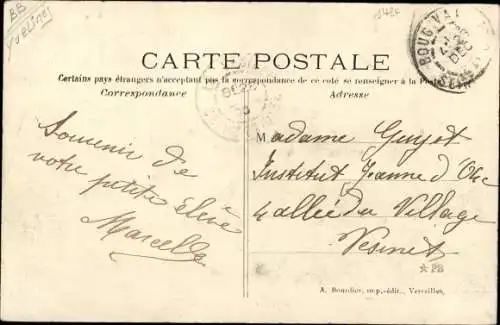 BB
Yvelines
CARTE POSTALE
Certains pays étrangers n'acceptant pas la correspondance de ce coté se renseigner à la Poste
Correspondance
Adresse
BOUGIVAL
DEC
Souvenir de
votre petite élève
Marcelle
Madame Guyot
Institut Jeanne d'Arc
4 allée du Village
Vesinet
★ PB
A. Bourdier, imp.-édit., Versailles.